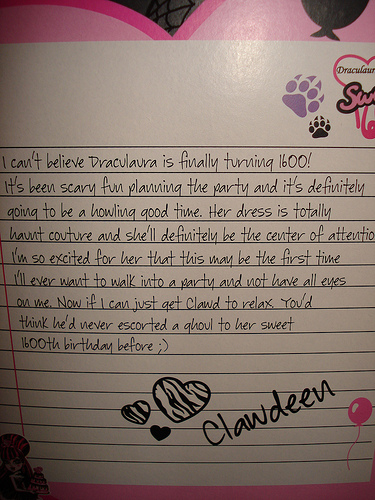 Draculaur
Sw
16
I can't believe Draculaura is finally turning 1600!
It's been scary fun planning the party and it's definitely
going to be a howling good time. Her dress is totally
haunt couture and she'll definitely be the center of attentio
I'm so excited for her that this may be the first time
I'll ever want to walk into a party and not have all eyes
on me. Now if I can just get Clawd to relax. You'd
think he'd never escorted a ghoul to her sweet
1600th birthday before ;)
Clawdeen